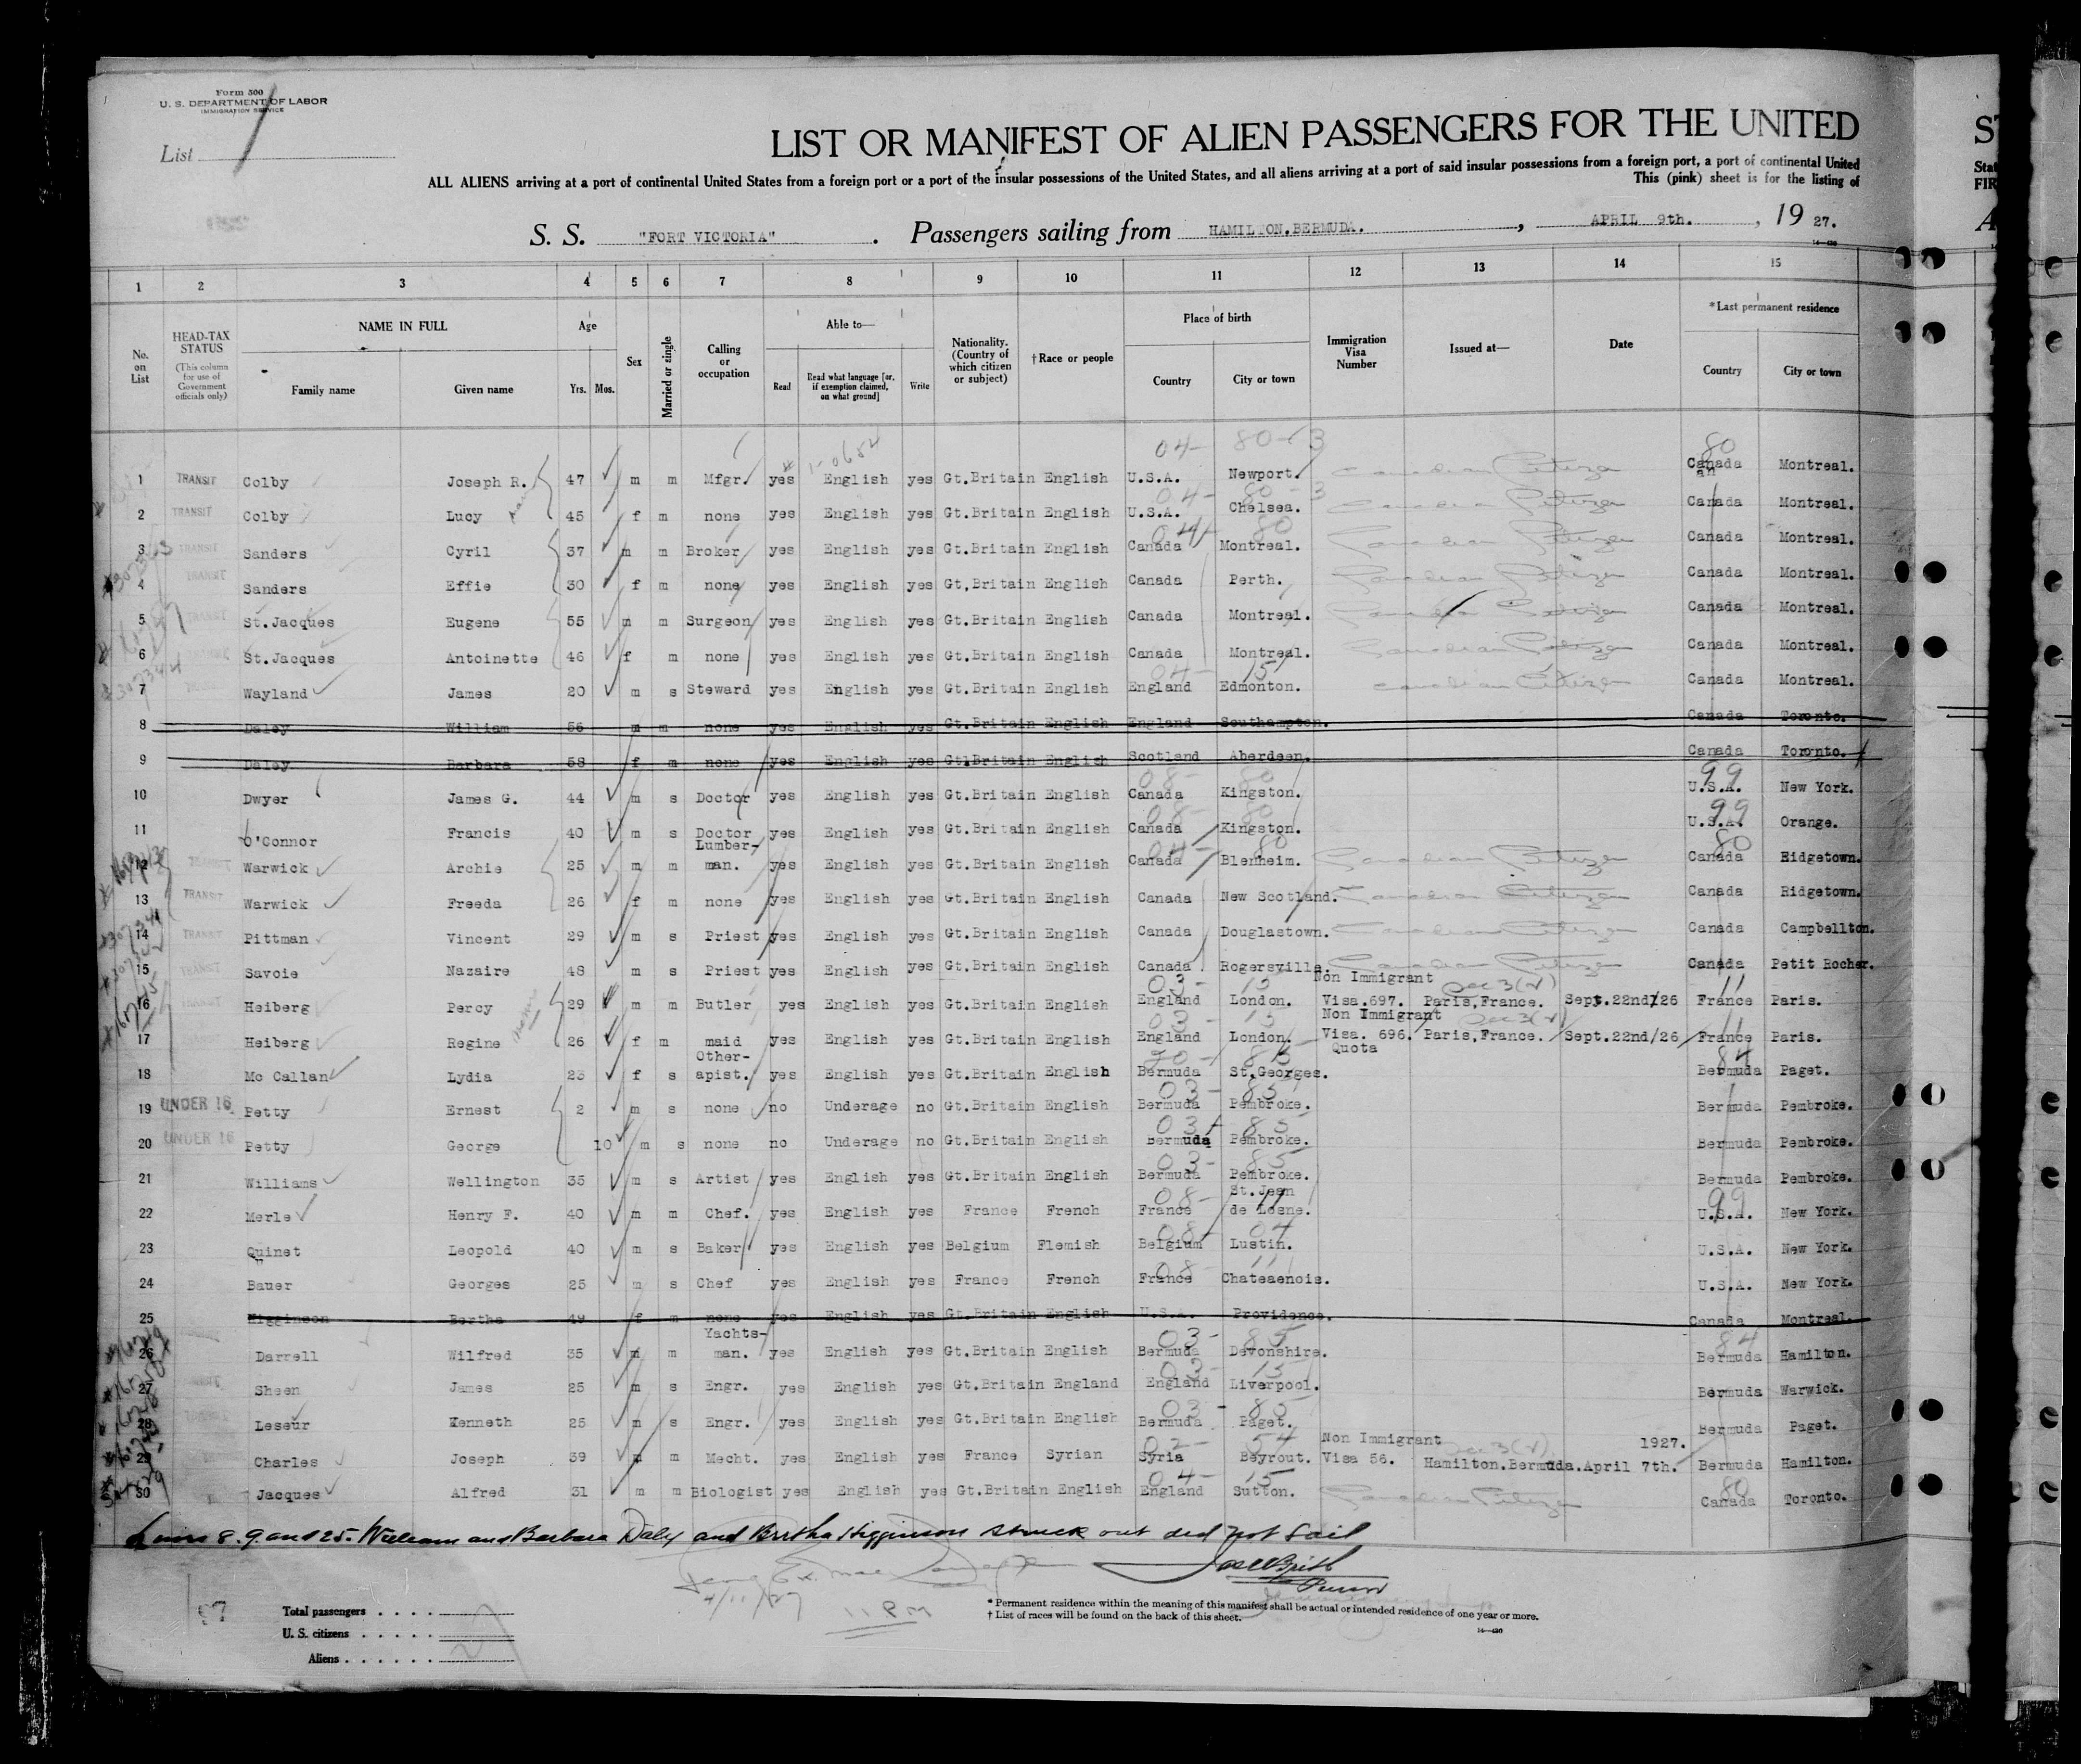 Form 500
U. S. DEPARTMENT OF LABOR
IMMIGRATION SERVICE
List 1
LIST OR MANIFEST OF ALIEN PASSENGERS FOR THE UNITED
ALL ALIENS arriving at a port of continental United States from a foreign port or a port of the insular possessions of the United States, and all aliens arriving at a port of said insular possessions from a foreign port, a port of continental United
This (pink) sheet is for the listing of
S. S. "FORT VICTORIA" . Passengers sailing from HAMILTON.BERMUDA. , APRIL 9th. , 19 27.
1 2 3 4 5 6 7 8 9 10 11 12 13 14 15
No. on List
HEAD-TAX STATUS (This column for use of Government officials only)
NAME IN FULL Family name Given name
Age Yrs. Mos.
Sex
Married or single
Calling or occupation
Able to— Read Read what language [or, if exemption claimed, on what ground] Write
Nationality. (Country of which citizen or subject)
†Race or people
Place of birth Country City or town
Immigration Visa Number
Issued at—
Date
*Last permanent residence Country City or town
04- 80-3 80
1 TRANSIT Colby Joseph R. 47 m m Mfgr. yes English yes Gt.Britain English U.S.A. Newport. Canadian Citizen Canada Montreal.
2 TRANSIT Colby Lucy 45 f m none yes English yes Gt.Britain English U.S.A. Chelsea. Canadian Citizen Canada Montreal.
3 TRANSIT Sanders Cyril 37 m m Broker yes English yes Gt.Britain English Canada Montreal. Canadian Citizen Canada Montreal.
4 TRANSIT Sanders Effie 30 f m none yes English yes Gt.Britain English Canada Perth. Canadian Citizen Canada Montreal.
5 TRANSIT St.Jacques Eugene 55 m m Surgeon yes English yes Gt.Britain English Canada Montreal. Canadian Citizen Canada Montreal.
6 St.Jacques Antoinette 46 f m none yes English yes Gt.Britain English Canada Montreal. Canadian Citizen Canada Montreal.
7 Wayland James 20 m s Steward yes English yes Gt.Britain English England Edmonton. Canadian Citizen Canada Montreal.
8 Daley William 56 m m none yes English yes Gt.Britain English England Southampton. Canada Toronto.
9 Daley Barbara 58 f m none yes English yes Gt.Britain English Scotland Aberdeen. Canada Toronto.
10 Dwyer James G. 44 m s Doctor yes English yes Gt.Britain English Canada Kingston. U.S.A. New York.
11 O'Connor Francis 40 m s Doctor yes English yes Gt.Britain English Canada Kingston. U.S.A. Orange.
12 TRANSIT Warwick Archie 25 m m Lumber-man. yes English yes Gt.Britain English Canada Blenheim. Canadian Citizen Canada Ridgetown.
13 TRANSIT Warwick Freeda 26 f m none yes English yes Gt.Britain English Canada New Scotland. Canadian Citizen Canada Ridgetown.
14 TRANSIT Pittman Vincent 29 m s Priest yes English yes Gt.Britain English Canada Douglastown. Canadian Citizen Canada Campbellton.
15 TRANSIT Savoie Nazaire 48 m s Priest yes English yes Gt.Britain English Canada Rogersville. Canadian Citizen Canada Petit Rocher.
16 TRANSIT Heiberg Percy 29 m m Butler yes English yes Gt.Britain English England London. Non Immigrant Visa.697. Paris,France. Sept.22nd/26 France Paris.
17 Heiberg Regine 26 f m maid yes English yes Gt.Britain English England London. Non Immigrant Visa. 696. Paris,France. Sept.22nd/26 France Paris.
18 Mc Callan Lydia 23 f s Other-apist. yes English yes Gt.Britain English Bermuda St.Georges. Quota Bermuda Paget.
19 UNDER 16 Petty Ernest 2 m s none no Underage no Gt.Britain English Bermuda Pembroke. Bermuda Pembroke.
20 UNDER 16 Petty George 10 m s none no Underage no Gt.Britain English Bermuda Pembroke. Bermuda Pembroke.
21 Williams Wellington 35 m s Artist yes English yes Gt.Britain English Bermuda Pembroke. Bermuda Pembroke.
22 Merle Henry F. 40 m m Chef. yes English yes France French France St.Jean de Losne. U.S.A. New York.
23 Quinet Leopold 40 m s Baker yes English yes Belgium Flemish Belgium Lustin. U.S.A. New York.
24 Bauer Georges 25 m s Chef yes English yes France French France Chateaenois. U.S.A. New York.
25 Higginson Bertha 49 f m none yes English yes Gt.Britain English U.S.A. Providence. Canada Montreal.
26 Darrell Wilfred 35 m m Yachts-man. yes English yes Gt.Britain English Bermuda Devonshire. Bermuda Hamilton.
27 Sheen James 25 m s Engr. yes English yes Gt.Britain England England Liverpool. Bermuda Warwick.
28 Leseur Kenneth 25 m s Engr. yes English yes Gt.Britain English Bermuda Paget. Bermuda Paget.
29 Charles Joseph 39 m m Mecht. yes English yes France Syrian Syria Beyrout. Non Immigrant Visa 56. Hamilton.Bermuda. April 7th. 1927. Bermuda Hamilton.
30 Jacques Alfred 31 m m Biologist yes English yes Gt.Britain English England Sutton. Canadian Citizen Canada Toronto.
Lines 8. 9. and 25. William and Barbara Daley and Bertha Higginson struck out did not sail
Purser
4/11/27
11 PM
Total passengers
U. S. citizens
Aliens
* Permanent residence within the meaning of this manifest shall be actual or intended residence of one year or more.
† List of races will be found on the back of this sheet.